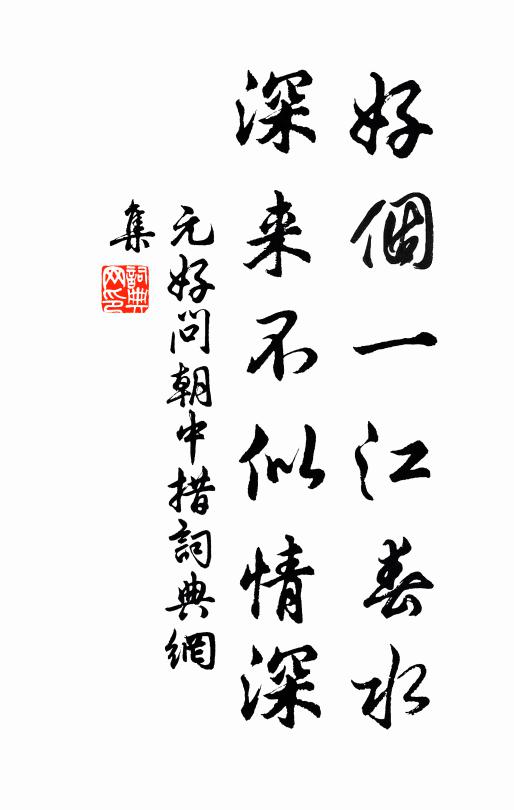 好個一江春水
深来不似情深
元好问朝中措詞典網
集
詞典
网印